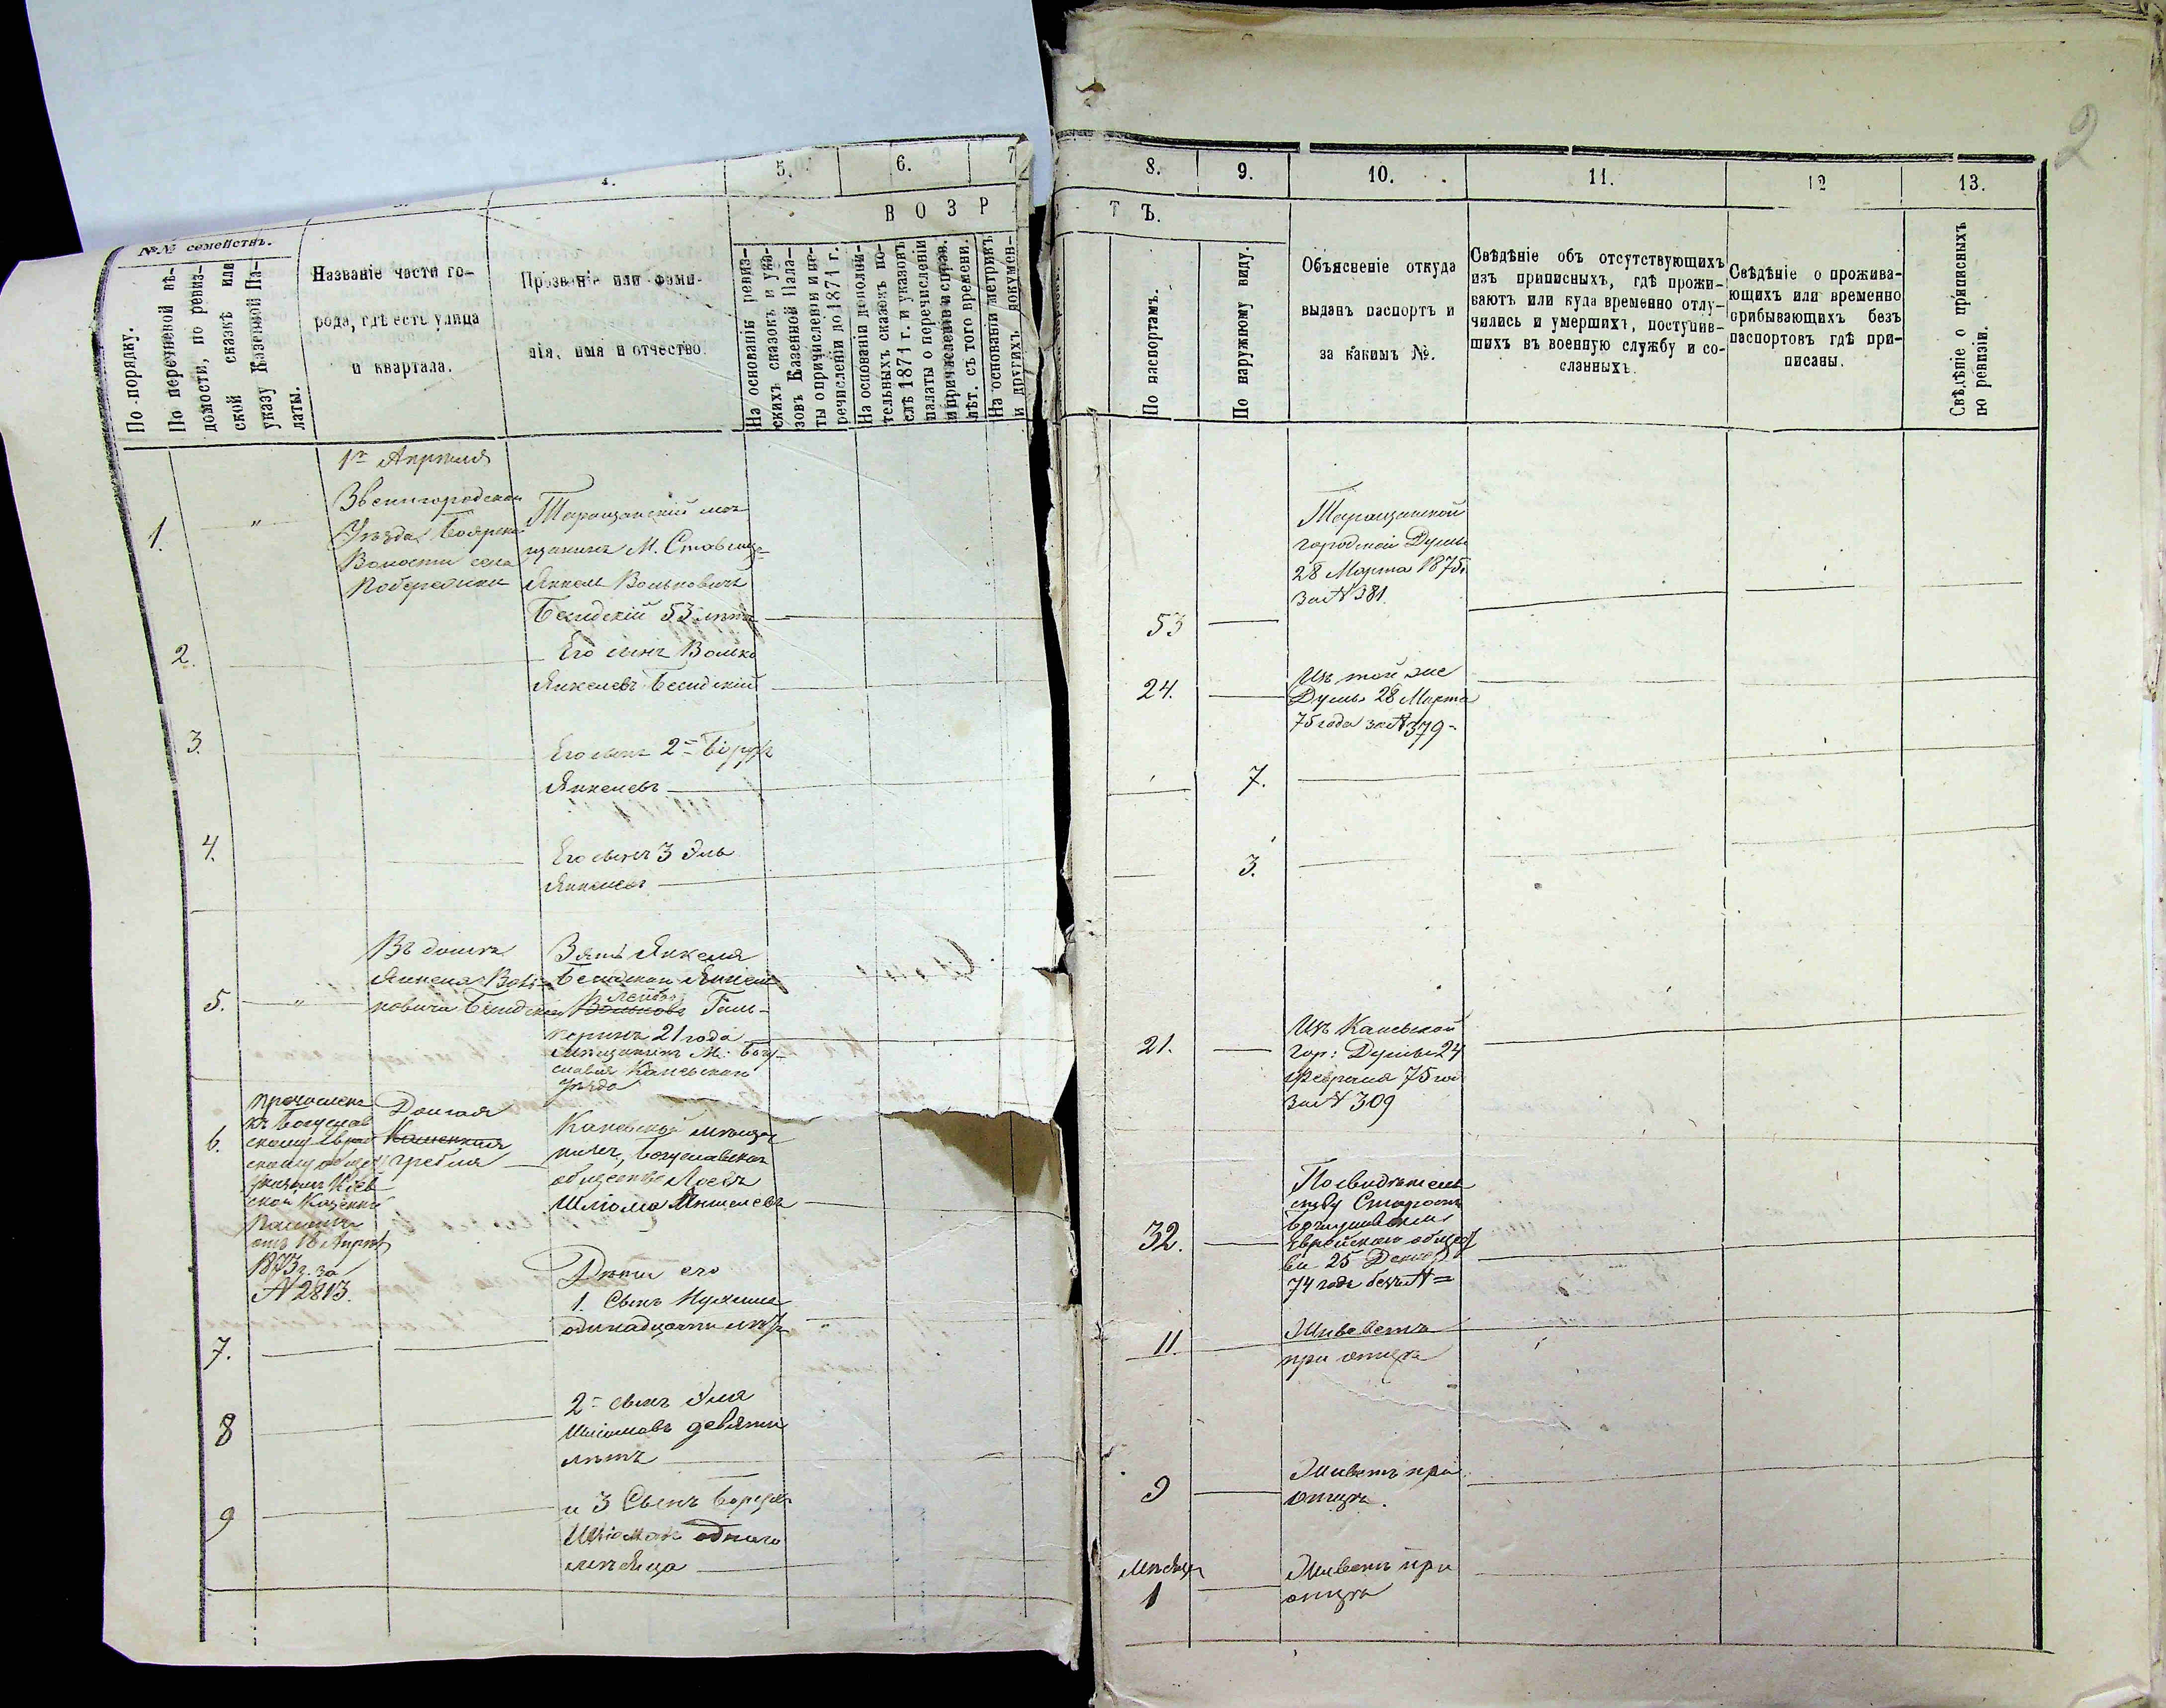 2
5.
6.
7
8.
9.
10.
11.
12
13.
ВОЗР
ТЪ.
№№ семействъ.
По порядку.
По перечневой вѣ-
домости, по ревиз-
ской сказкѣ или
указу Казенной Па-
латы.
Названіе части го-
рода, гдѣ есть улица
и квартала.
Прозваніе или фами-
лія, имя и отчество.
На основаніи ревиз-
скихъ сказокъ и ука-
зовъ Казенной Пала-
ты о причисленіи и пе-
речисленіи до 1871 г.
На основаніи дополни-
тельныхъ сказокъ по-
слѣ 1871 г. и указовъ
палаты о перечисленіи
и причисленіи и справ.
лѣт. съ того времени.
На основаніи метрикъ
и другихъ докумен-
По паспортамъ.
По наружному виду.
Объясненіе откуда
выданъ паспортъ и
за какимъ №.
Свѣдѣніе объ отсутствующихъ
изъ приписныхъ, гдѣ прожи-
ваютъ или куда временно отлу-
чились и умершихъ, поступив-
шихъ въ военную службу и со-
сланныхъ.
Свѣдѣніе о прожива-
ющихъ или временно
прибывающихъ безъ
паспортовъ гдѣ при-
писаны.
Свѣдѣніе о приписныхъ
по ревизіи.
1го Апрѣля
1.
"
Звенигородскаго
Уѣзда Боярско
Волости села
Побережки
Таращанскій мѣ
щанинъ М. Ставищъ
Янкель Вольковичъ
Бендскій 53 лѣтъ
53
Таращанской
городской Думы
28 Марта 1875г.
За № 381.
2.
Его сынъ Волько
Янкелевъ Бендскій
24.
Изъ той же
Думы 28 Марта
75 года за № 379
3.
Его сынъ 2й Борухъ
Янкелевъ
7.
4.
Его сынъ 3 Эль
Янкелевъ
3.
5.
"
Въ домѣ
Янкеля Воль-
ковича Бендскаго
Зять Янкеля
Бендскаго
Лейбовъ
Вольковъ Галь-
перинъ 21 года
Мѣщанинъ М. Богу-
слава Каневскаго
Уѣзда
21.
Изъ Каневской
Гор: Думы 24
Февраля 75 го
За № 309
6.
Причисленъ
къ Богуслав
скому Еврей
скому общес
указомъ Кіев
ской Казенной
Палаты
отъ 18 Апрѣл
1873 г. за
№ 2813.
Долгая
Каменная
гребля
Каневскій мѣща
нинъ, Богуславскаго
общества Лоевъ
Шліома Аншелевъ
32.
По свидѣтель
ству Старосты
Богуславскаго
Еврейскаго общест
ва 25 Декаб
74 года безъ №
Дѣти его
7.
1. Сынъ Нухимъ
одинадцати лѣтъ
"
11.
Живетъ
при отцѣ
8
2й сынъ Эля
Шліомовъ девяти
лѣтъ
9
Живетъ при
отцѣ.
9
и 3 Сынъ Борухъ
Шліомовъ одного
мѣсяца
Мѣсяцъ
1
Живетъ при
отцѣ